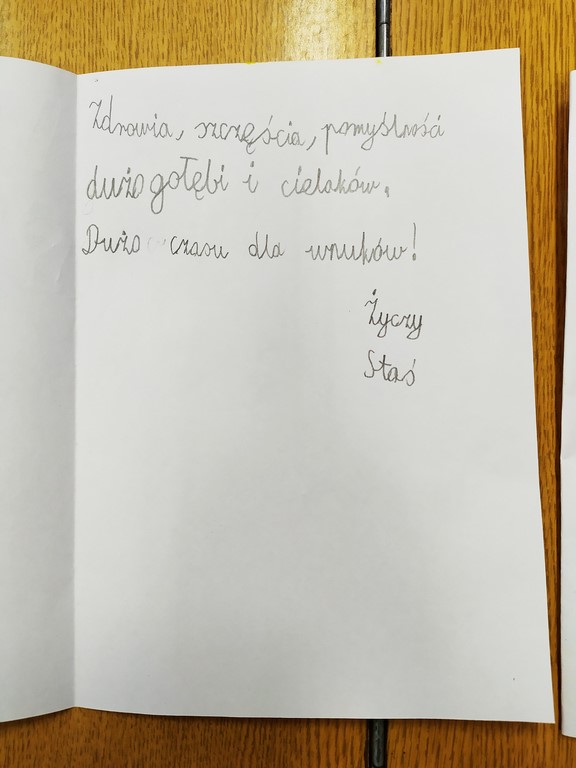 Zdrowia, szczęścia, pomyślności
dużo gołębi i cielaków.
Dużo czasu dla wnuków!
Życzy
Staś